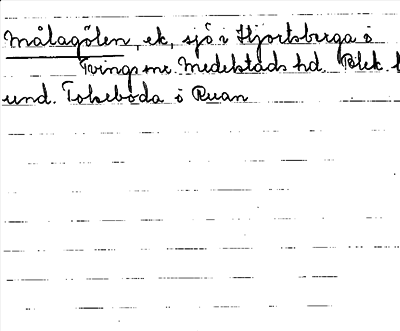 Målagölen, ek, sjö i Hjortsberga o
Tvings snr. Medelstads hd Blek. l
und. Tolseboda o Ruan